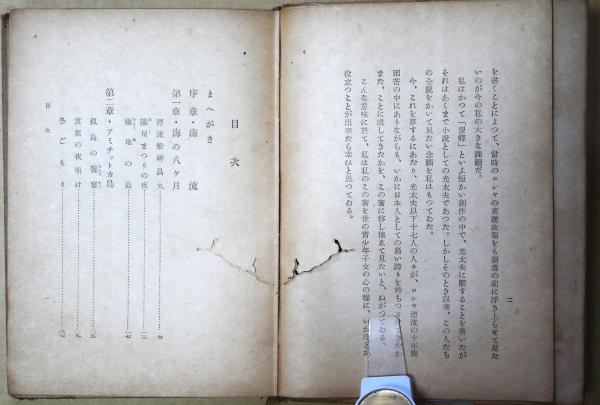 二
を書くことによつて、當時のロシヤの東漸政策をも讀者の前に浮き上らせて見た
いのが私の大きな課題だ。
私はかつて「望郷」といふ短かい創作の中で、光太夫に關することを書いたが
それはあくまで小説としての光太夫であつた。しかしそのとき以來、この人たち
の全貌をかいて見たい念願を私はもつてゐた。
今、これを草するにあたり、光太夫以下十七人の人々が、ロシヤ漂流の十年間
困苦の中にありながらも、いかに日本人としての高い誇りを持ちつ
また、ことに處してきたかを、この著に移し植ゑて見たいと、ねがつてゐる。
こんな意味に於て、私は私のこの著を世の青少年子女の心の糧に、
役立つことが出來たら幸ひと思つてゐる。
目次
まへがき
序章・海流
第一章・海の八ヶ月
漂流船神昌丸 七
まつりの夜
極地の島
第二章・アミチヤトカ島
孤島の饗宴
言葉の夜明け
冬ごもり
目次 一